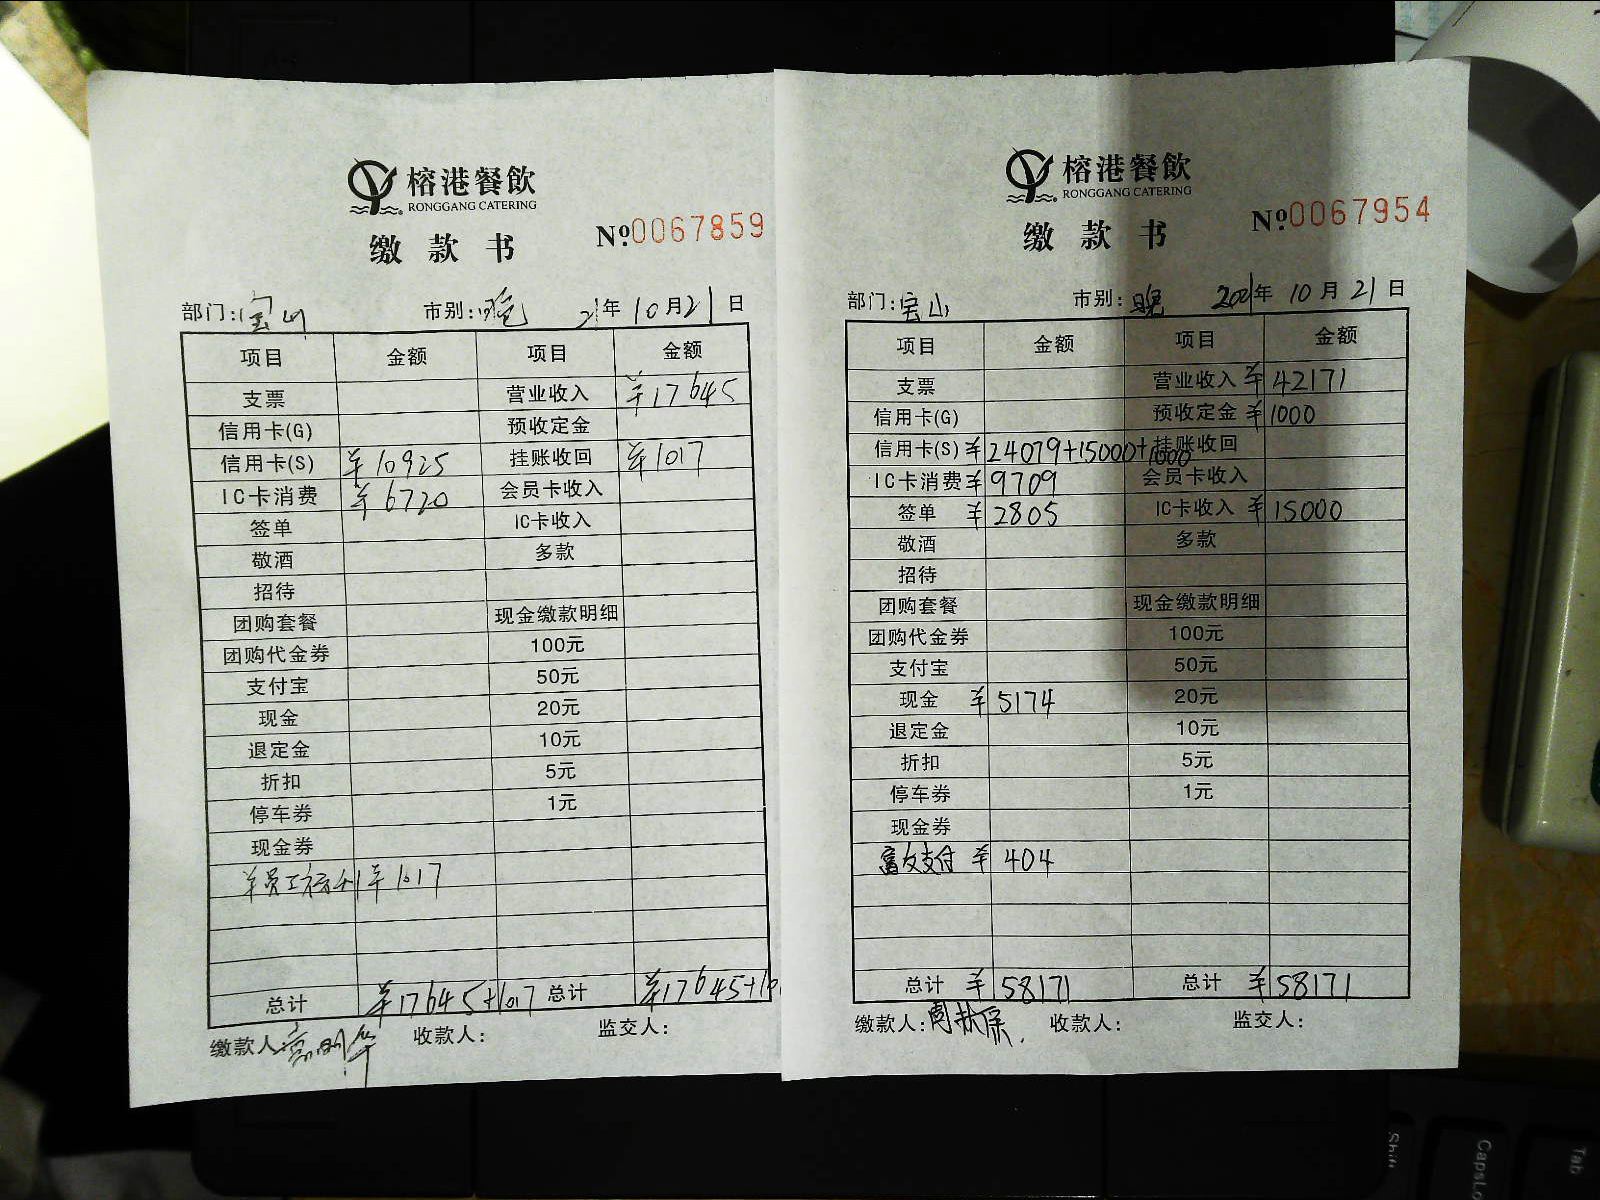 榕港餐飲
RONGGANG CATERING
缴款书 №0067859
部门:宝山 市别:晚 21年10月21日
项目 金额 项目 金额
支票 营业收入 ¥17645
信用卡(G) 预收定金
信用卡(S) ¥10925 挂账收回 ¥1017
IC卡消费 ¥6720 会员卡收入
签单 IC卡收入
敬酒 多款
招待
团购套餐 现金缴款明细
团购代金券 100元
支付宝 50元
现金 20元
退定金 10元
折扣 5元
停车券 1元
现金券
员工福利 ¥1017
总计 ¥17645+1017 总计 ¥17645+10
缴款人: 收款人: 监交人:
榕港餐飲
RONGGANG CATERING
缴款书 №0067954
部门:宝山 市别:晚 2021年10月21日
项目 金额 项目 金额
支票 营业收入 ¥42171
信用卡(G) 预收定金 ¥1000
信用卡(S) ¥24079+15000+1000 挂账收回
IC卡消费 ¥9709 会员卡收入
签单 ¥2805 IC卡收入 ¥15000
敬酒 多款
招待
团购套餐 现金缴款明细
团购代金券 100元
支付宝 50元
现金 ¥5174 20元
退定金 10元
折扣 5元
停车券 1元
现金券
富友支付 ¥404
总计 ¥58171 总计 ¥58171
缴款人: 收款人: 监交人:
Shift
CapsLo
Tab